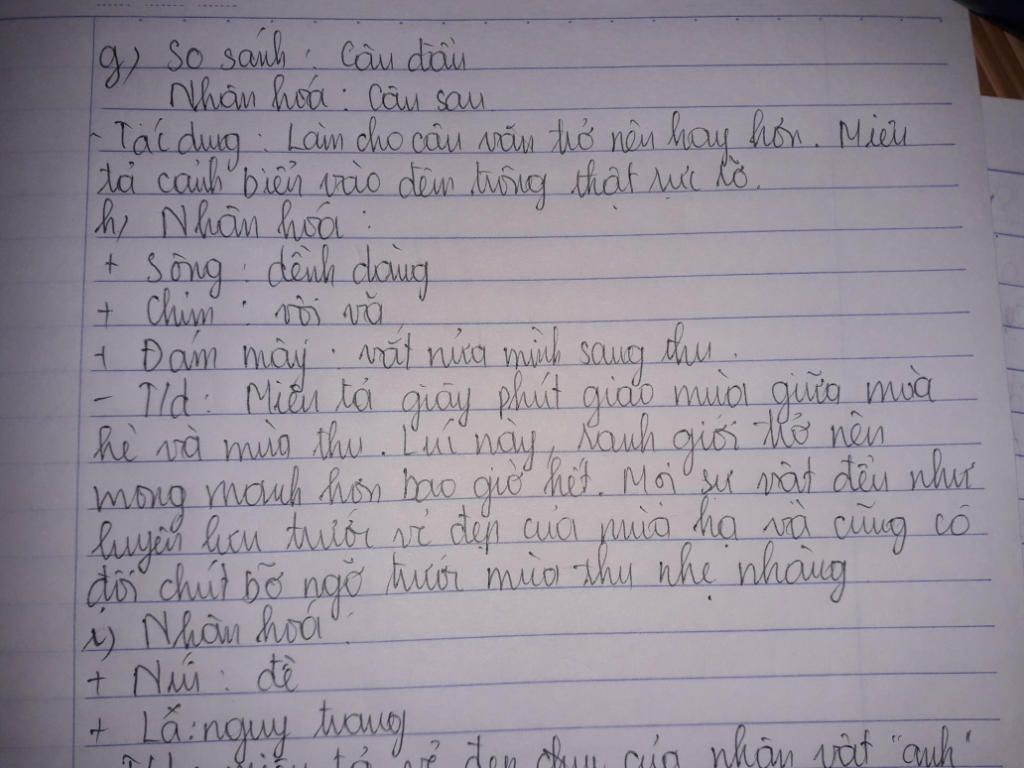 g) So sánh : Câu đầu
Nhân hoá : Câu sau
- Tác dụng : Làm cho câu văn trở nên hay hơn. Miêu
tả cảnh biển vào đêm trông thật rực rỡ.
h) Nhân hoá :
+ Sông : dềnh dàng
+ Chim : vội vã
+ Đám mây : vắt nửa mình sang thu.
- T/d : Miêu tả giây phút giao mùa giữa mùa
hè và mùa thu. Lúc này, ranh giới trở nên
mong manh hơn bao giờ hết. Mọi sự vật đều như
luyến lưu trước vẻ đẹp của mùa hạ và cũng có
đôi chút bỡ ngỡ trước mùa thu nhẹ nhàng
i) Nhân hoá :
+ Núi : đè
+ Lá : nguỵ trang
tả vẻ đẹp của nhân vật "anh"